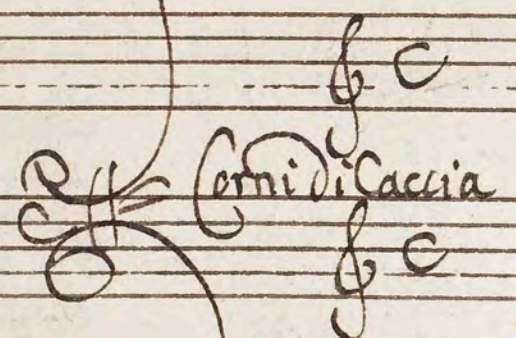 Corni di Caccia